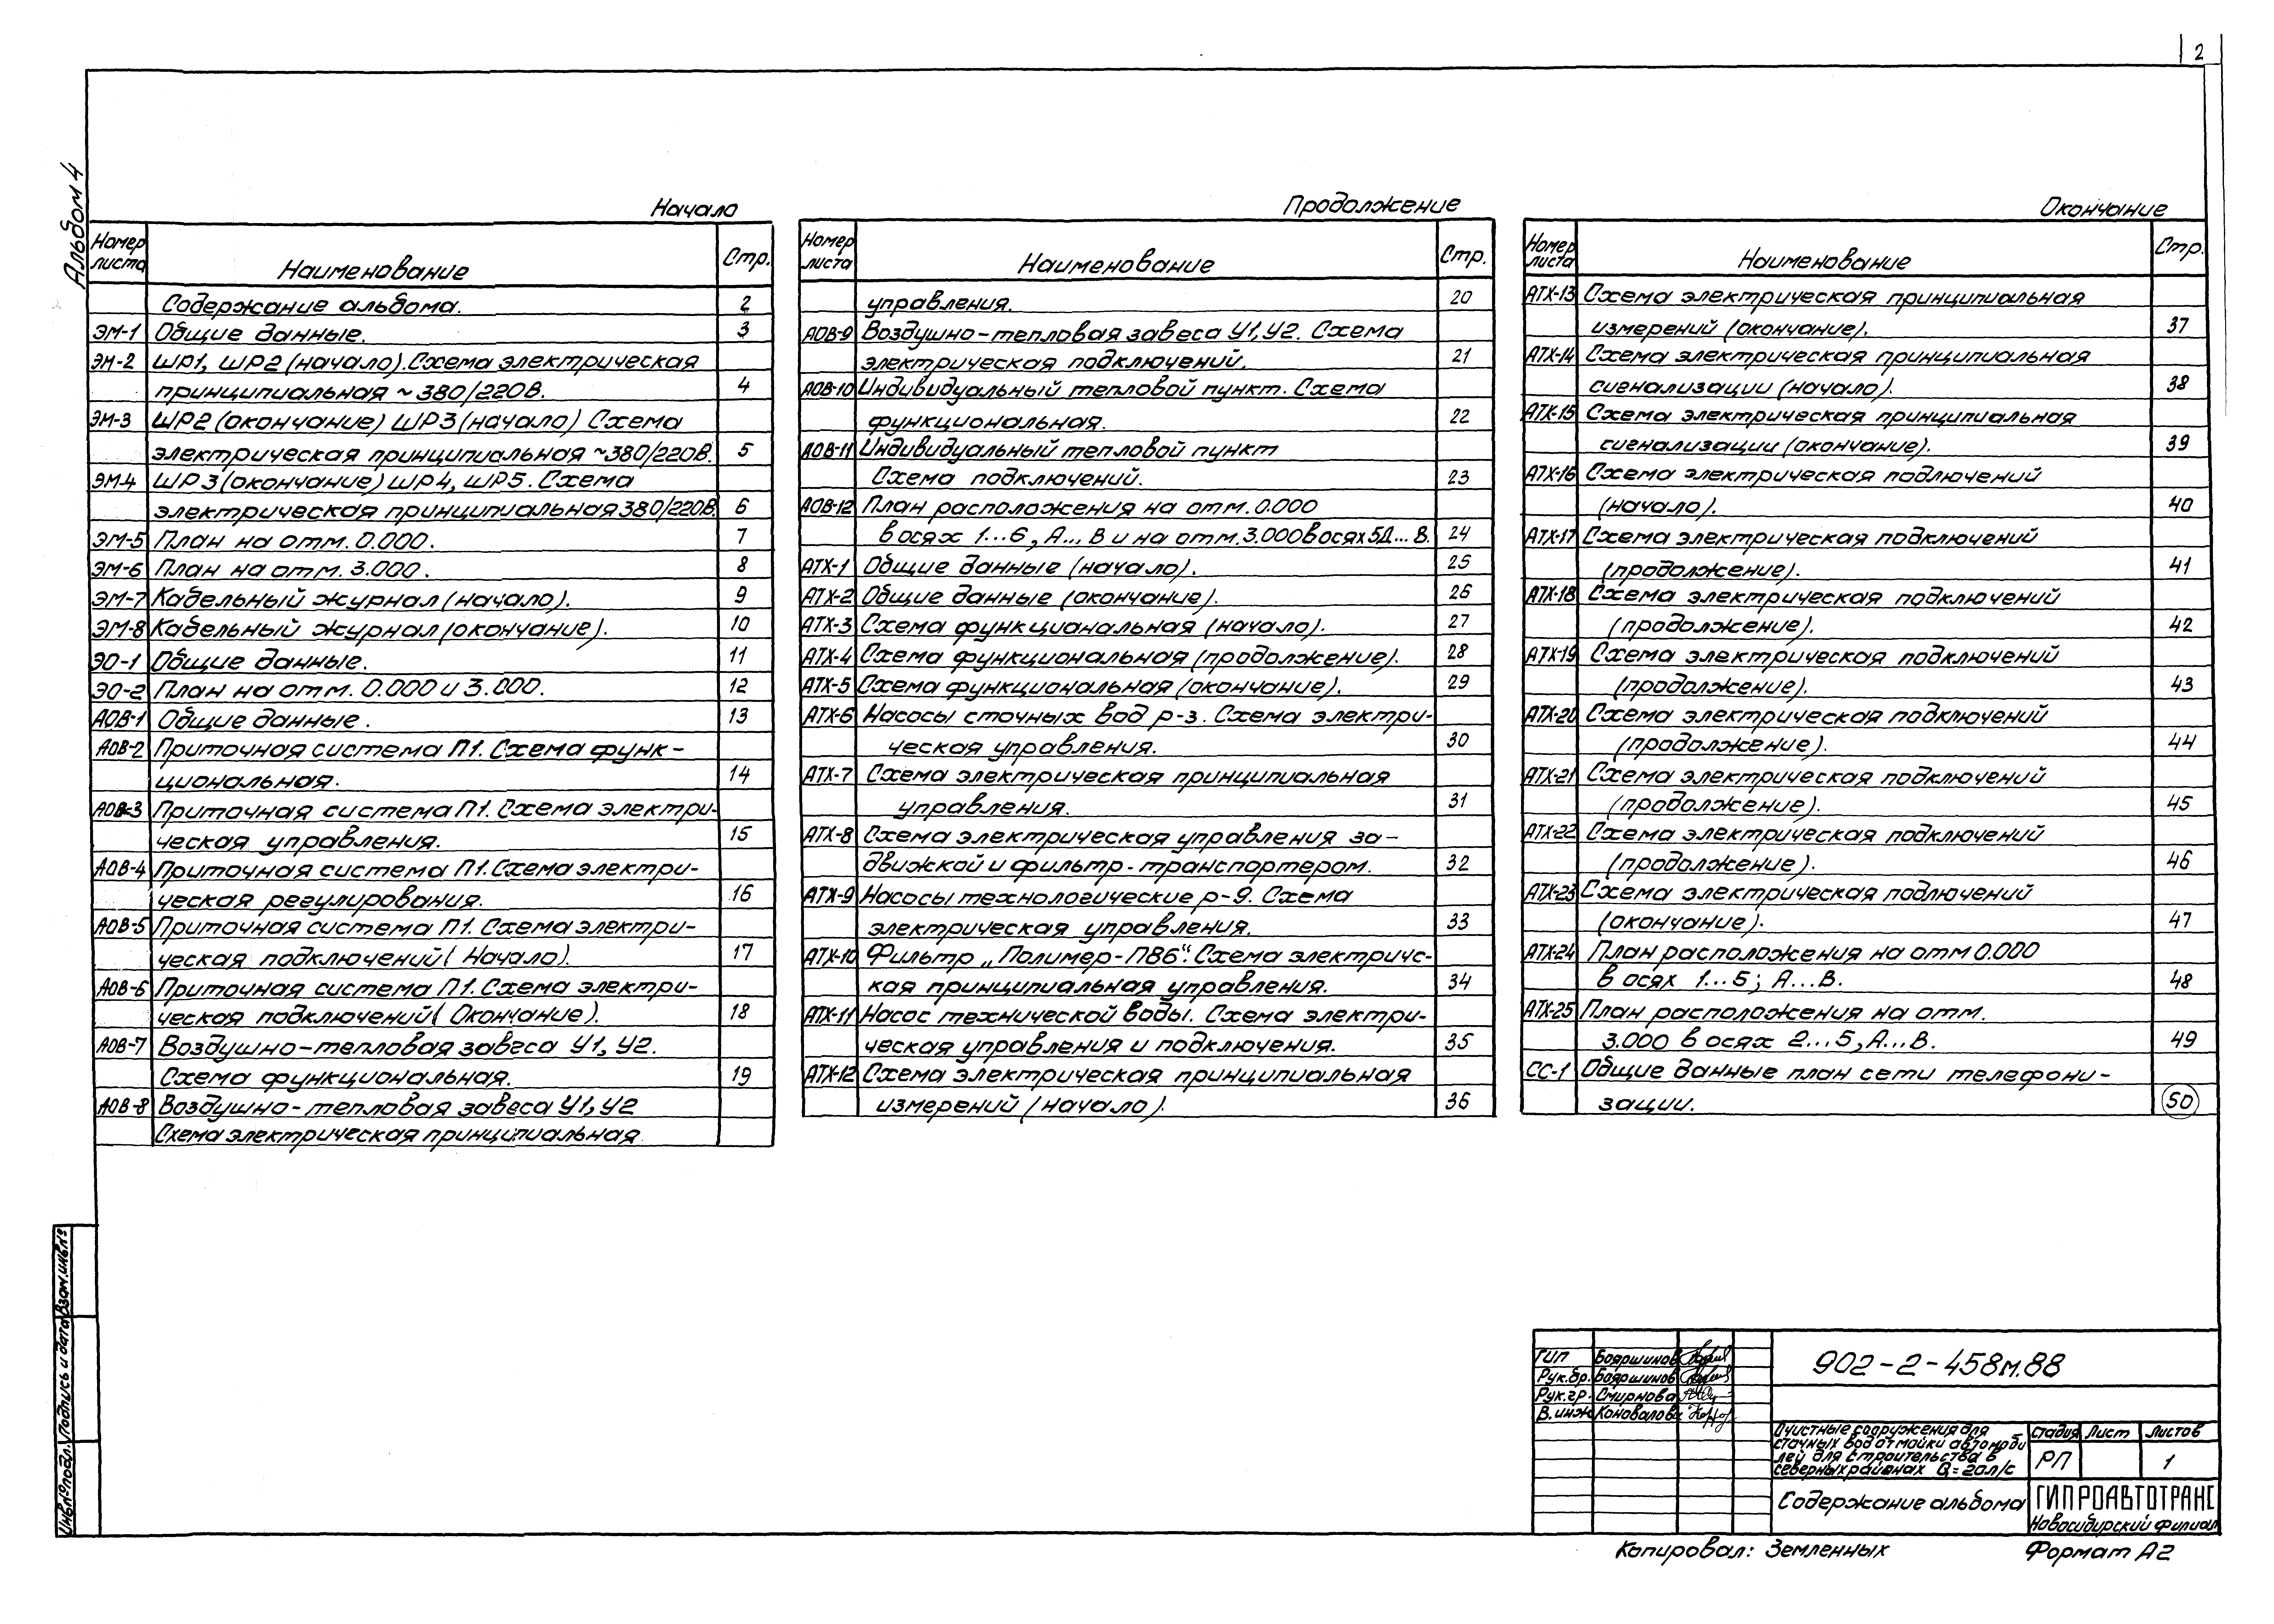 2
Альбом 4
Начало
Номер листа Наименование Стр.
Содержание альбома. 2
ЭМ-1 Общие данные. 3
ЭМ-2 ШР1, ШР2 (начало). Схема электрическая
принципиальная ~380/220В. 4
ЭМ-3 ШР2 (окончание) ШР3 (начало) Схема
электрическая принципиальная ~380/220В. 5
ЭМ-4 ШР3 (окончание) ШР4, ШР5. Схема
электрическая принципиальная 380/220В. 6
ЭМ-5 План на отм. 0.000. 7
ЭМ-6 План на отм. 3.000. 8
ЭМ-7 Кабельный журнал (начало). 9
ЭМ-8 Кабельный журнал (окончание). 10
ЭО-1 Общие данные. 11
ЭО-2 План на отм. 0.000 и 3.000. 12
АОВ-1 Общие данные. 13
АОВ-2 Приточная система П1. Схема функ-
циональная. 14
АОВ-3 Приточная система П1. Схема электри-
ческая управления. 15
АОВ-4 Приточная система П1. Схема электри-
ческая регулирования. 16
АОВ-5 Приточная система П1. Схема электри-
ческая подключений (Начало). 17
АОВ-6 Приточная система П1. Схема электри-
ческая подключений (Окончание). 18
АОВ-7 Воздушно-тепловая завеса У1, У2.
Схема функциональная. 19
АОВ-8 Воздушно-тепловая завеса У1, У2
Схема электрическая принципиальная
Продолжение
Номер листа Наименование Стр.
управления. 20
АОВ-9 Воздушно-тепловая завеса У1, У2. Схема
электрическая подключений. 21
АОВ-10 Индивидуальный тепловой пункт. Схема
функциональная. 22
АОВ-11 Индивидуальный тепловой пункт
Схема подключений. 23
АОВ-12 План расположения на отм. 0.000
в осях 1...6, А...В и на отм. 3.000 в осях 5Д...В. 24
АТХ-1 Общие данные (начало). 25
АТХ-2 Общие данные (окончание). 26
АТХ-3 Схема функциональная (начало). 27
АТХ-4 Схема функциональная (продолжение). 28
АТХ-5 Схема функциональная (окончание). 29
АТХ-6 Насосы сточных вод р-з. Схема электри-
ческая управления. 30
АТХ-7 Схема электрическая принципиальная
управления. 31
АТХ-8 Схема электрическая управления за-
движкой и фильтр-транспортером. 32
АТХ-9 Насосы технологические р-9. Схема
электрическая управления. 33
АТХ-10 Фильтр „Полимер-П86“. Схема электричс-
кая принципиальная управления. 34
АТХ-11 Насос технической воды. Схема электри-
ческая управления и подключения. 35
АТХ-12 Схема электрическая принципиальная
измерений (начало). 36
Окончание
Номер листа Наименование Стр.
АТХ-13 Схема электрическая принципиальная
измерений (окончание). 37
АТХ-14 Схема электрическая принципиальная
сигнализации (начало). 38
АТХ-15 Схема электрическая принципиальная
сигнализации (окончание). 39
АТХ-16 Схема электрическая подлючений
(начало). 40
АТХ-17 Схема электрическая подключений
(продолжение). 41
АТХ-18 Схема электрическая подключений
(продолжение). 42
АТХ-19 Схема электрическая подключений
(продолжение). 43
АТХ-20 Схема электрическая подключений
(продолжение). 44
АТХ-21 Схема электрическая подключений
(продолжение). 45
АТХ-22 Схема электрическая подключений
(продолжение). 46
АТХ-23 Схема электрическая подлючений
(окончание). 47
АТХ-24 План расположения на отм 0.000
в осях 1...5; А...В. 48
АТХ-25 План расположения на отм.
3.000 в осях 2...5, А...В. 49
СС-1 Общие данные план сети телефони-
зации. 50
Инв.№ подл. Подпись и дата Взам.инв.№
ГИП Бояршинов
Рук.бр. Бояршинов
Рук.гр. Смирнова
В.инж Коновалова
902-2-458м.88
Очистные сооружения для
сточных вод от мойки автомоби
лей для строительства в
северных районах Q=20л/с
Стадия Лист Листов
РП 1
Содержание альбома
ГИПРОАВТОТРАНС
Новосибирский филиал
Копировал: Земленных Формат А2